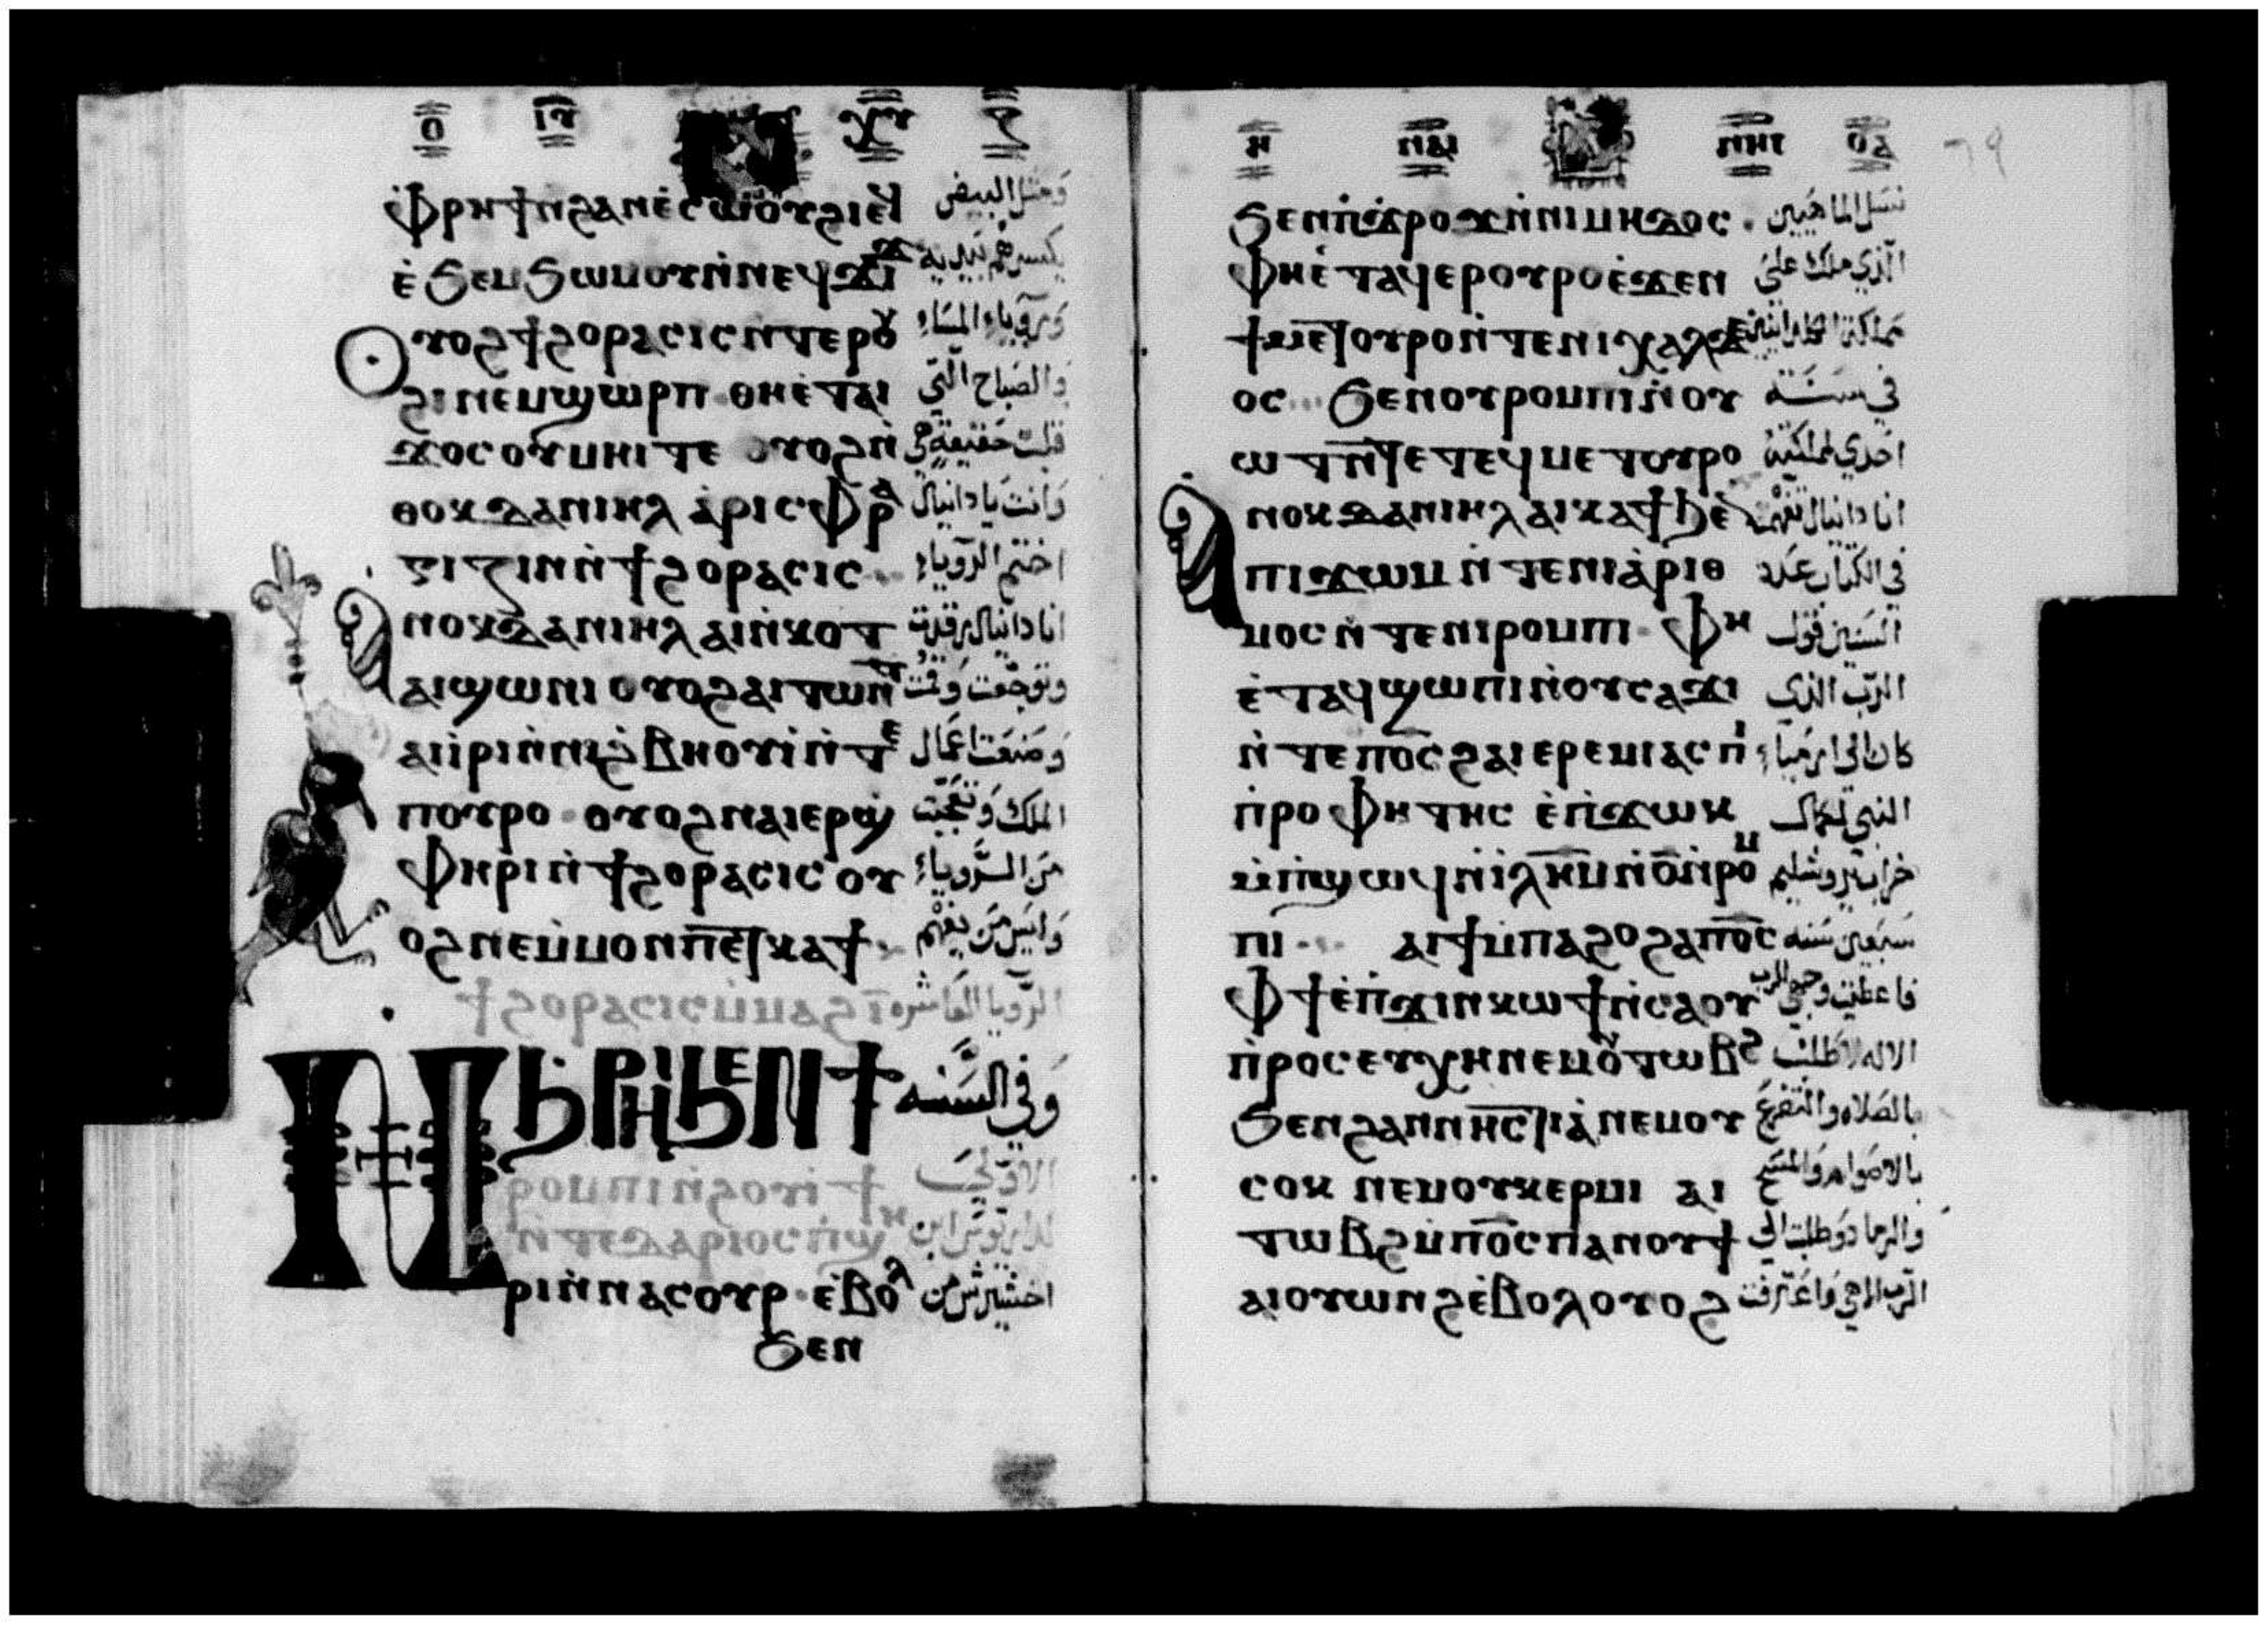 ο ιυ ⲭⲩ
ⲫⲣⲏϯⲛϩⲁⲛⲉ̀ⲥⲱⲟⲩϩⲓⲉϥ وَمثل البيض
ⲉ̀ϧⲉⲙϧⲱⲙⲟⲩⲛ̀ⲛⲉϥϫⲓϫ يكسرهم بيديه
ⲟⲩⲟϩϯϩⲟⲣⲁⲥⲓⲥⲛ̀ⲧⲉⲣⲟⲩ ورؤياء المساء
ϩⲓⲛⲉⲙϣⲱⲣⲡ ⲑⲏⲉ̀ⲧⲁⲓ والصباح الّتي
ϫⲟⲥⲟⲩⲙⲏⲓⲧⲉ ⲟⲩⲟϩⲛ̀ قلت حقيقة هي
ⲑⲟⲕⲇⲁⲛⲓⲏⲗ ⲁⲣⲓⲥⲫⲣⲁ وانت يا دانيال
ⲅⲓⲍⲓⲛⲛ̀ϯϩⲟⲣⲁⲥⲓⲥ اختم الرؤياء
ⲁⲛⲟⲕⲇⲁⲛⲓⲏⲗⲁⲓⲛ̀ⲕⲟⲧ انا دانيال رقدت
ⲁⲓϣⲱⲛⲓ ⲟⲩⲟϩⲁⲓⲧⲱⲛⲧ وتوجعت وقمت
ⲁⲓⲓ̀ⲣⲓⲛ̀ⲛⲓϩⲃⲏⲟⲩⲓ̀ⲛ̀ⲧⲉ وصنعت اعمال
ⲡⲟⲩⲣⲟ ⲟⲩⲟϩⲛⲁⲓⲉⲣϣ الملك وتعجبت
ⲫⲏⲣⲓⲛ̀ϯϩⲟⲣⲁⲥⲓⲥ ⲟⲩ من الرؤياء
ⲟϩⲛⲉⲙ̀ⲙⲟⲛⲡⲉⲧⲕⲁϯ وليس من يفهم
ϯϩⲟⲣⲁⲥⲓⲥⲙ̀ⲙⲁϩⲓ̅ الرؤيا العاشره
ⲛ̀ϩⲣⲏⲓϧⲉⲛϯ وفي السنه
ⲣⲟⲙⲡⲓⲛ̀ϩⲟⲩⲓ̀ϯ الاولي
ⲛ̀ⲧⲉⲇⲁⲣⲓⲟⲥⲡ̀ϣⲏ لداريوش ابن
ⲣⲓⲛ̀ⲛⲁⲥⲟⲩⲣ ⲉ̀ⲃⲟⲗ اخشيرش من
ϧⲉⲛ
ⲏ ⲛⲁⲓ ⲡⲏⲓ ⲟⲁ
ϧⲉⲛⲡ̀ϫⲣⲟϫⲛ̀ⲛⲓⲙⲏⲇⲟⲥ نسل الماهيين
ⲫⲏⲉ̀ⲧⲁϥⲉⲣⲟⲩⲣⲟⲉ̀ϫⲉⲛ الّذي ملك علي
ϯⲙⲉⲧⲟⲩⲣⲟⲛ̀ⲧⲉⲛⲓⲭⲁⲗⲇⲉ مملكة الكلدانيين
ⲟⲥ ϧⲉⲛⲟⲩⲣⲟⲙⲡⲓⲛ̀ⲟⲩ في سنة
ⲱⲧⲛ̀ⲧⲉⲧⲉϥⲙⲉⲧⲟⲩⲣⲟ احدي لمملكته
ⲁⲛⲟⲕⲇⲁⲛⲓⲏⲗⲁⲓⲕⲁϯϧⲉⲛ انا دانيال تفهمت
ⲡⲓϫⲱⲙ ⲛ̀ⲧⲉⲛⲓⲁ̀ⲣⲓⲑ في الكتاب عدد
ⲙⲟⲥⲛ̀ⲧⲉⲛⲓⲣⲟⲙⲡⲓ ⲫⲏ السنين قول
ⲉ̀ⲧⲁϥϣⲱⲡⲓⲛ̀ⲟⲩⲥⲁϫⲓ الرّب الذي
ⲛ̀ⲧⲉⲡⲟ̅ⲥ̅ϩⲁⲓⲉⲣⲉⲙⲓⲁⲥⲡⲓ كان الي ارمياء
ⲡ̀ⲣⲟⲫⲏⲧⲏⲥ ⲉ̀ⲡ̀ϫⲱⲕ النبي لكمال
ⲙ̀ⲡ̀ϣⲱϥⲛ̀ⲓ̀ⲗⲏⲙⲛ̀ⲟ̅ⲛ̀ⲣⲟⲙ خراب يروشليم
ⲡⲓ ⲁⲓϯⲙ̀ⲡⲁϩⲟϩⲁⲡⲟ̅ⲥ̅ سبعين سنه
ⲫϯⲉ̀ⲡ̀ϫⲓⲛⲕⲱϯⲛ̀ⲥⲁⲟⲩ فاعطيت وجهي الرب
ⲡ̀ⲣⲟⲥⲉⲩⲭⲏⲛⲉⲙⲟⲩⲧⲱⲃϩ الاله لاطلب
ϧⲉⲛϩⲁⲛⲛⲏⲥⲧⲓⲁ̀ⲛⲉⲙⲟⲩ بالصلاه والتضرع
ⲥⲟⲕ ⲛⲉⲙⲟⲩⲕⲉⲣⲙⲓ ⲁⲓ بالاصوام والمسح
ⲧⲱⲃϩⲙ̀ⲡⲟ̅ⲥ̅ⲡⲁⲛⲟⲩϯ والرماد وطلبت الي
ⲁⲓⲟⲩⲱⲛϩⲉ̀ⲃⲟⲗⲟⲩⲟϩ الرّب الاهي واعترفت